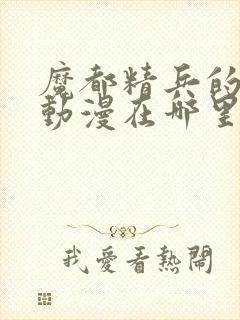 魔都精兵的
動漫在哪里
我愛看熱鬧